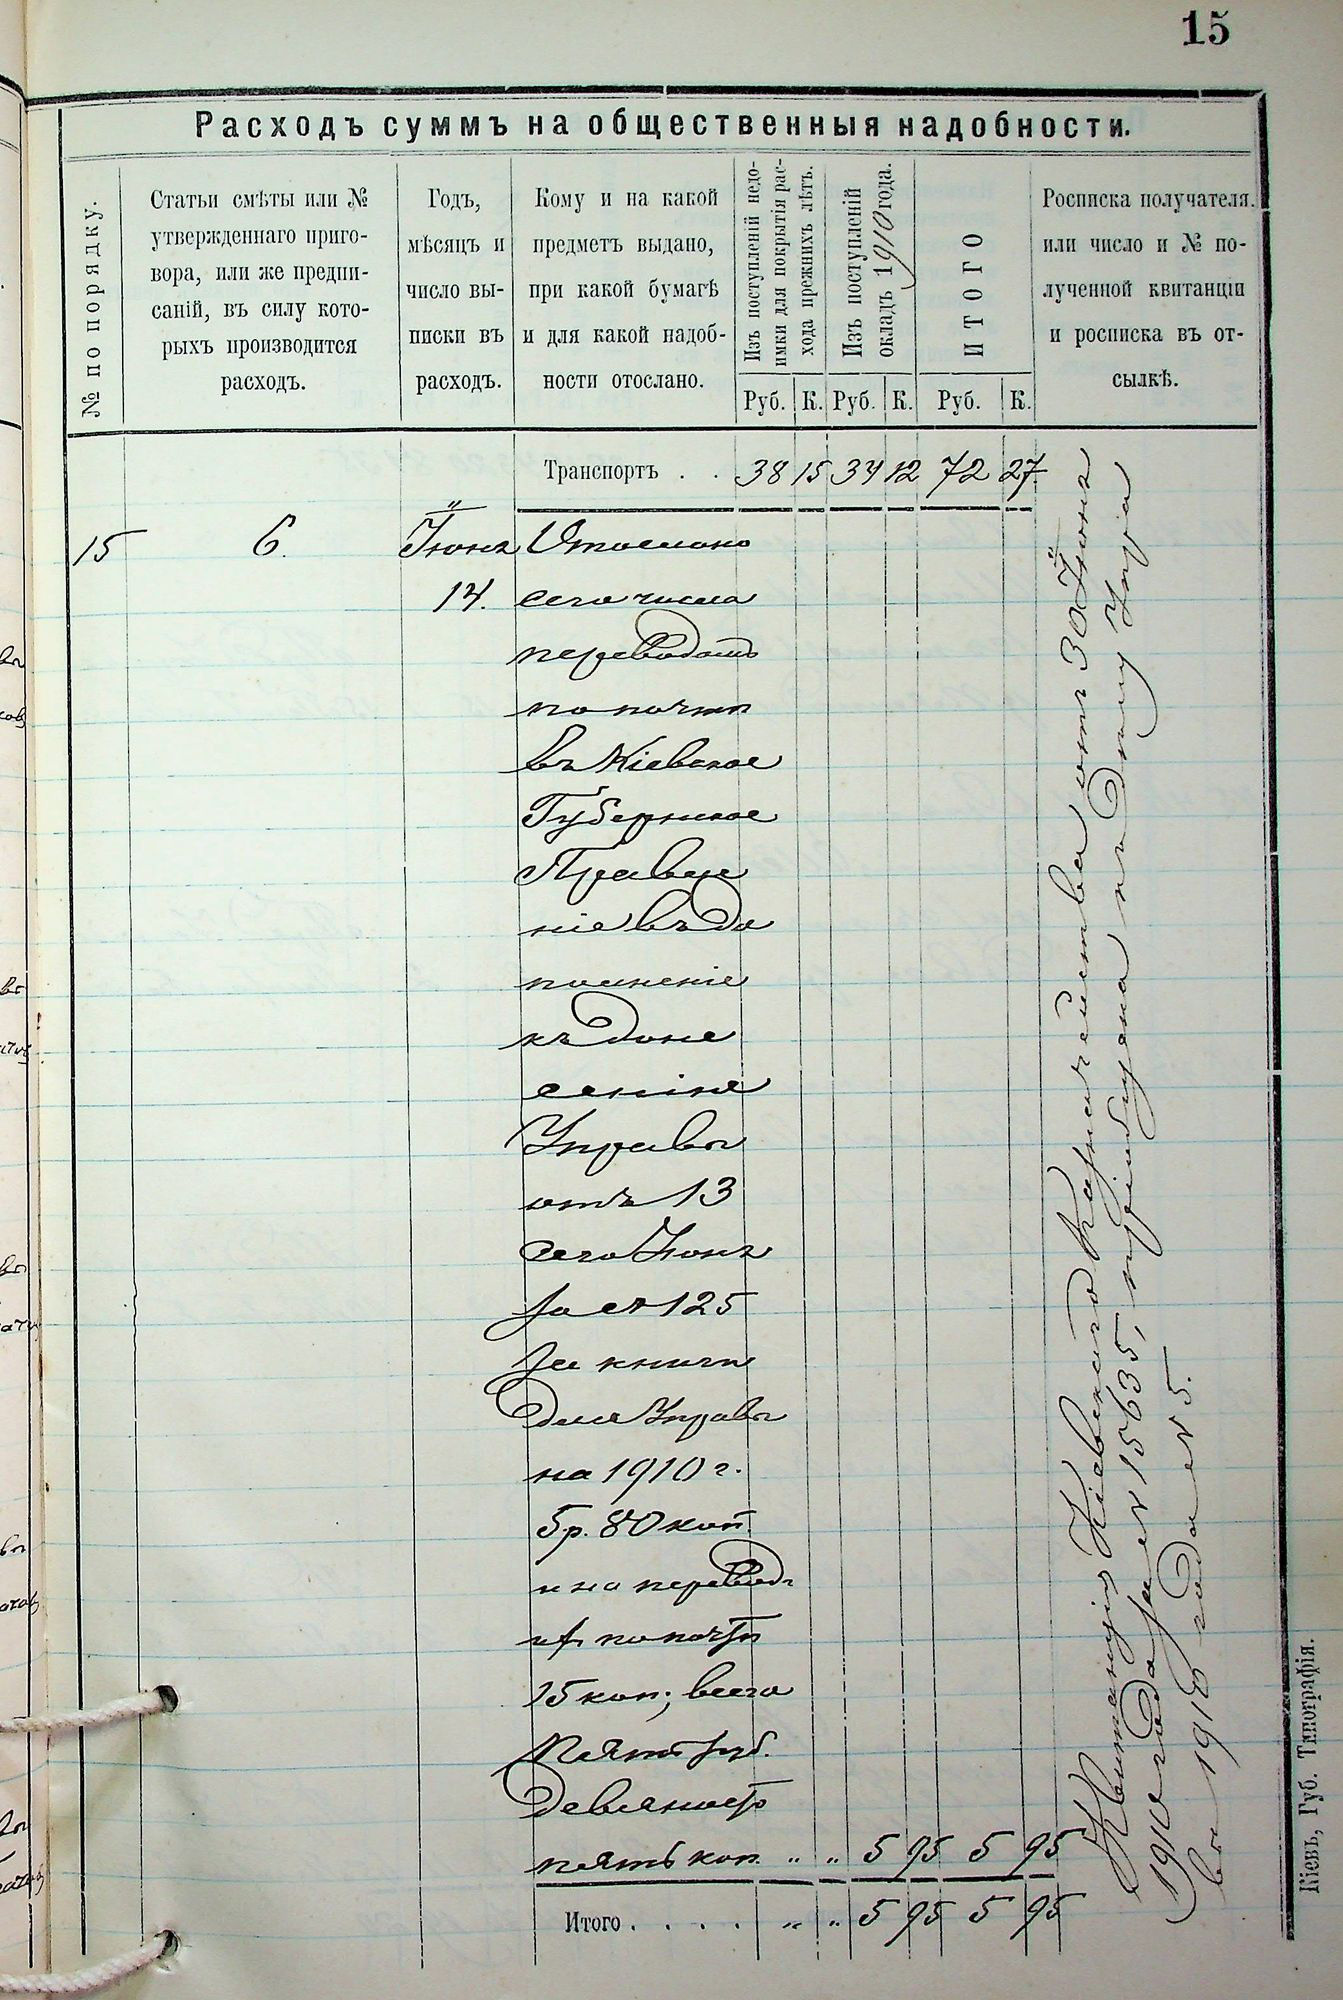 15
Расходъ суммъ на общественныя надобности.
№ по порядку.
Статьи смѣты или №
утвержденнаго приго-
вора, или же предпи-
саній, въ силу кото-
рыхъ производится
расходъ.
Годъ,
мѣсяцъ и
число вы-
писки въ
расходъ.
Кому и на какой
предметъ выдано,
при какой бумагѣ
и для какой надоб-
ности отослано.
Изъ поступленій недо-
имки для покрытія рас-
хода прежнихъ лѣтъ.
Изъ поступленій
окладъ 1910 года.
ИТОГО
Росписка получателя.
или число и № по-
лученной квитанціи
и росписка въ от-
сылкѣ.
Руб. К. Руб. К. Руб. К.
Транспортъ . . 38 15 34 12 72 27
15 6. Іюня Отослано
14. сего числа
переводомъ
по почтѣ
въ Кіевское
Губернское
Правле
ніе въ до
полненіе
къ доне
сенію
Управы
отъ 13
сего Іюня
за № 125
за книги
для Управы
на 1910 г.
5 р. 80 коп.
и на перевод
ихъ по почтѣ
15 коп; всего
Пять руб.
девяносто
пять коп. „ „ 5 95 5 95
Итого . . . . „ „ 5 95 5 95
Квитанція Кіевскаго Казначейства отъ 30 Іюня
1910 года за № 15635, пріобщена къ дѣлу Упра
вы 1910 года № 5.
Кіевъ, Губ. Типографія.